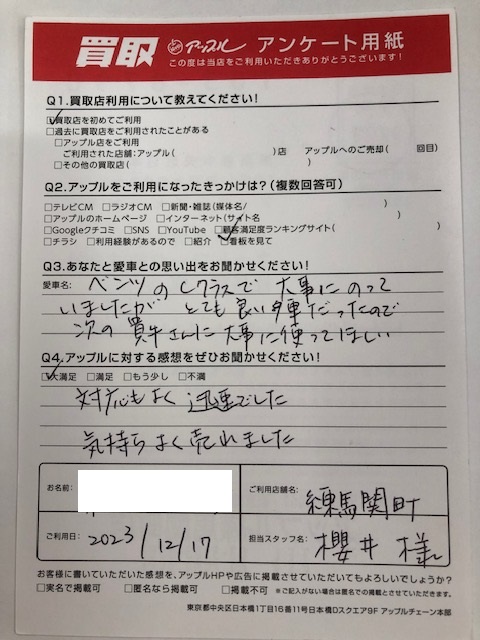 買取 アップル アンケート用紙
この度は当店をご利用いただきありがとうございます!
Q1.買取店利用について教えてください!
☑買取店を初めてご利用
□過去に買取店をご利用されたことがある
□アップル店をご利用
ご利用された店舗:アップル( )店 アップルへのご売却( 回目)
□その他の買取店( )
Q2.アップルをご利用になったきっかけは?(複数回答可)
□テレビCM □ラジオCM □新聞・雑誌(媒体名/ )
□アップルのホームページ □インターネット(サイト名 )
□Googleクチコミ □SNS □YouTube □顧客満足度ランキングサイト( )
□チラシ □利用経験があるので □紹介 ☑看板を見て
Q3.あなたと愛車との思い出をお聞かせください!
愛車名: ベンツのCクラスで 大事にのって
いましたが とても良い車だったので
次の買手さんに大事に使ってほしい
Q4.アップルに対する感想をぜひお聞かせください!
☑大満足 □満足 □もう少し □不満
対応もよく 迅速でした
気持ちよく売れました
お名前: ご利用店舗名: 練馬関町
ご利用日: 2023/12/17 担当スタッフ名: 櫻井様
お客様に書いていただいた感想を、アップルHPや広告に掲載させていただいてもよろしいでしょうか?
□実名で掲載可 □匿名なら掲載可 □掲載不可 ※ご記入がない場合は匿名での掲載とさせていただきます。
東京都中央区日本橋1丁目16番11号日本橋Dスクエア9F アップルチェーン本部